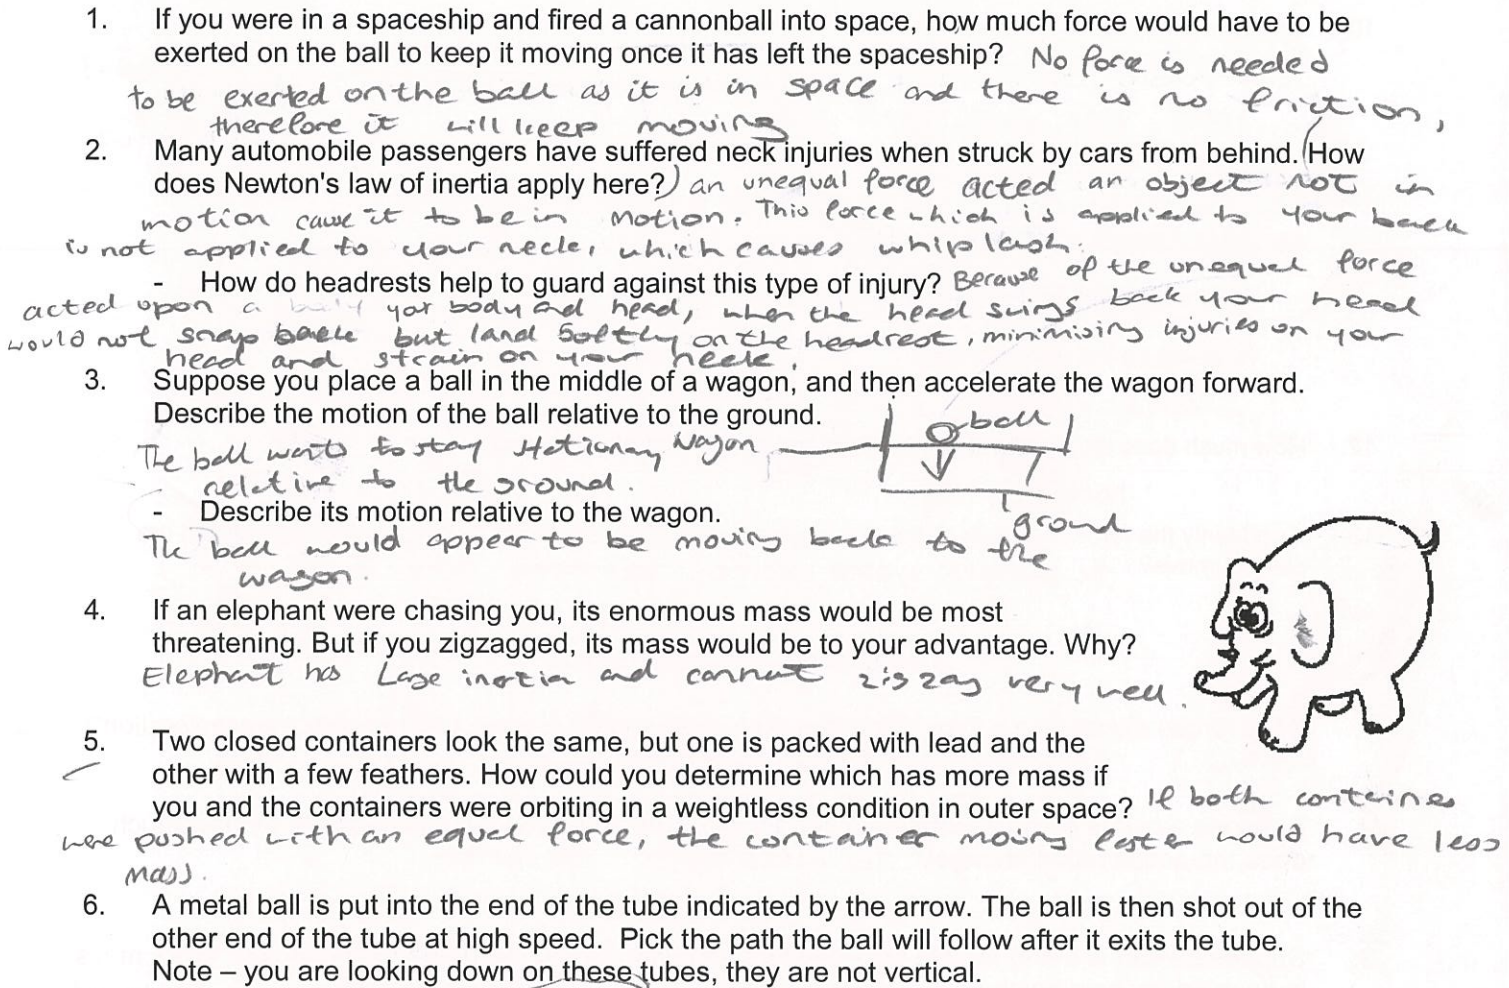 1. If you were in a spaceship and fired a cannonball into space, how much force would have to be
exerted on the ball to keep it moving once it has left the spaceship? No force is needed
to be exerted on the ball as it is in space and there is no friction,
therefore it will keep moving
2. Many automobile passengers have suffered neck injuries when struck by cars from behind. (How
does Newton's law of inertia apply here?) an unequal force acted an object not in
motion cause it to be in motion. This force which is applied to your back
is not applied to your neck, which causes whiplash.
- How do headrests help to guard against this type of injury? Because of the unequal force
acted upon a your body and head, when the head swings back your head
would not snap back but land softly on the headrest, minimising injuries on your
head and strain on your neck.
3. Suppose you place a ball in the middle of a wagon, and then accelerate the wagon forward.
Describe the motion of the ball relative to the ground.
ball
The ball wants to stay stationary Wagon
relative to the ground.
- Describe its motion relative to the wagon.
ground
The ball would appear to be moving back to the
wagon.
4. If an elephant were chasing you, its enormous mass would be most
threatening. But if you zigzagged, its mass would be to your advantage. Why?
Elephant has Lage inertia and cannot zig zag very well.
5. Two closed containers look the same, but one is packed with lead and the
other with a few feathers. How could you determine which has more mass if
you and the containers were orbiting in a weightless condition in outer space? If both containes
were pushed with an equal force, the container moving faster would have less
mass.
6. A metal ball is put into the end of the tube indicated by the arrow. The ball is then shot out of the
other end of the tube at high speed. Pick the path the ball will follow after it exits the tube.
Note – you are looking down on these tubes, they are not vertical.